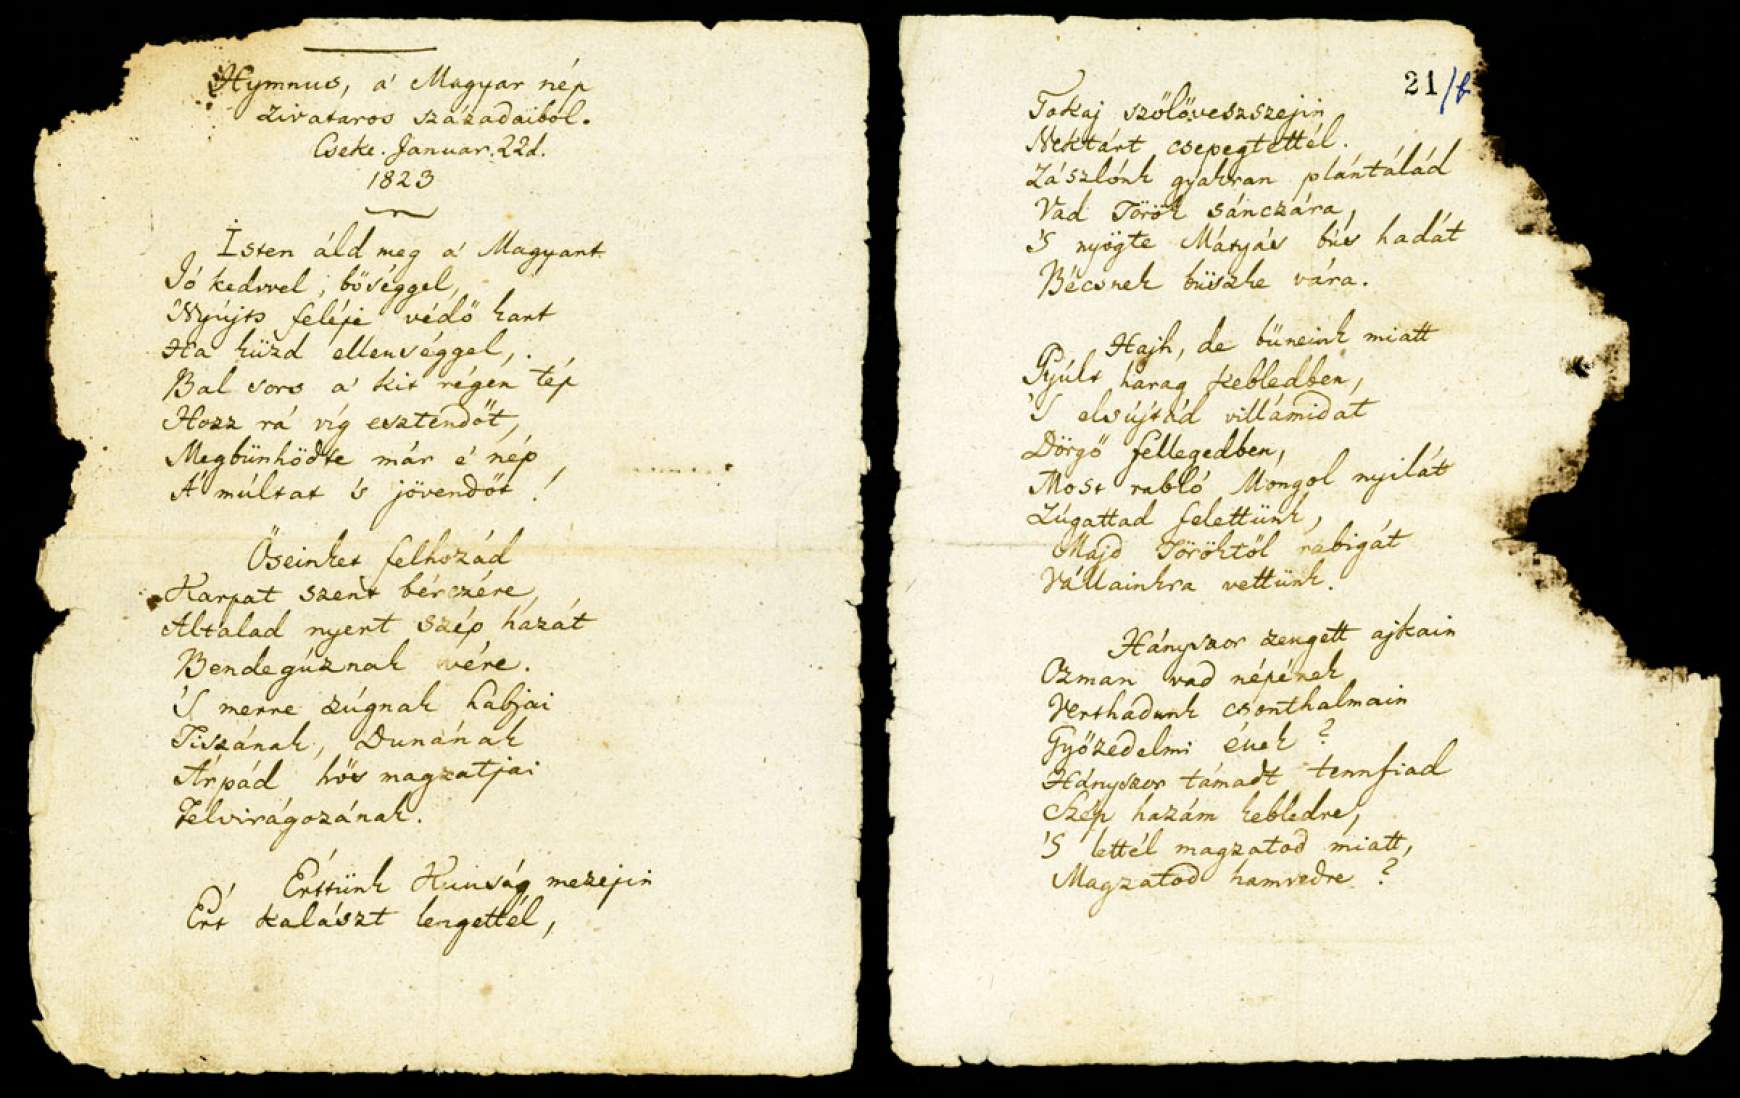 Hymnus, a' Magyar nép
zivataros századaiból.
Cseke. Januar. 22d.
1823
Isten áld meg a' Magyart
Jó kedvvel, bőséggel,
Nyújts feléje védő kart
Ha küzd ellenséggel,
Bal sors a' kit régen tép
Hozz rá víg esztendőt,
Megbünhödte már e' nép
A' múltat 's jövendőt!
Őseinket felhozád
Karpat szent bérczére,
Altalad nyert szép hazát
Bendegúznak vére.
'S merre zúgnak habjai
Tiszának, Dunának
Árpád hős magzatjai
Felvirágozának.
Értünk Kunság mezejin
Ért kalászt lengettél,
21/b
Tokaj szőlővesszejin
Nektárt csepegtettél.
Zászlónk gyakran plántálád
Vad Török sánczára,
'S nyögte Mátyás bús hadát
Bécsnek büszke vára.
Hajh, de bűneink miatt
Gyúlt harag kebledben,
'S elsújtád villámidat
Dörgő fellegedben,
Most rabló Mongol nyilát
Zúgattad felettünk,
Majd Töröktől rabigát
Vállainkra vettünk.
Hányszor zengett ajkain
Ozman vad népének
Vert hadunk csonthalmain
Győzedelmi ének?
Hányszor támadt tennfiad
Szép hazám kebledre,
'S lettél magzatod miatt,
Magzatod hamvvedre?